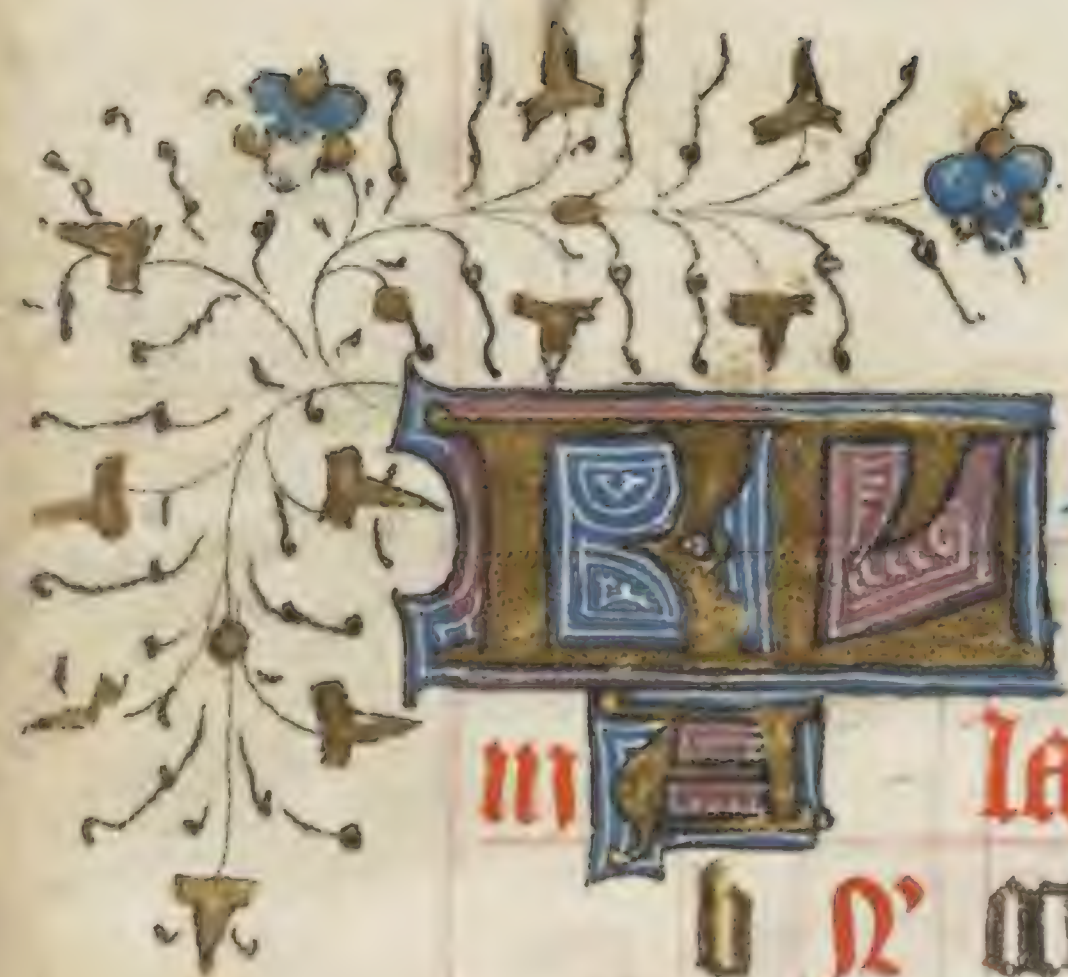 KL
iii A la
b N'